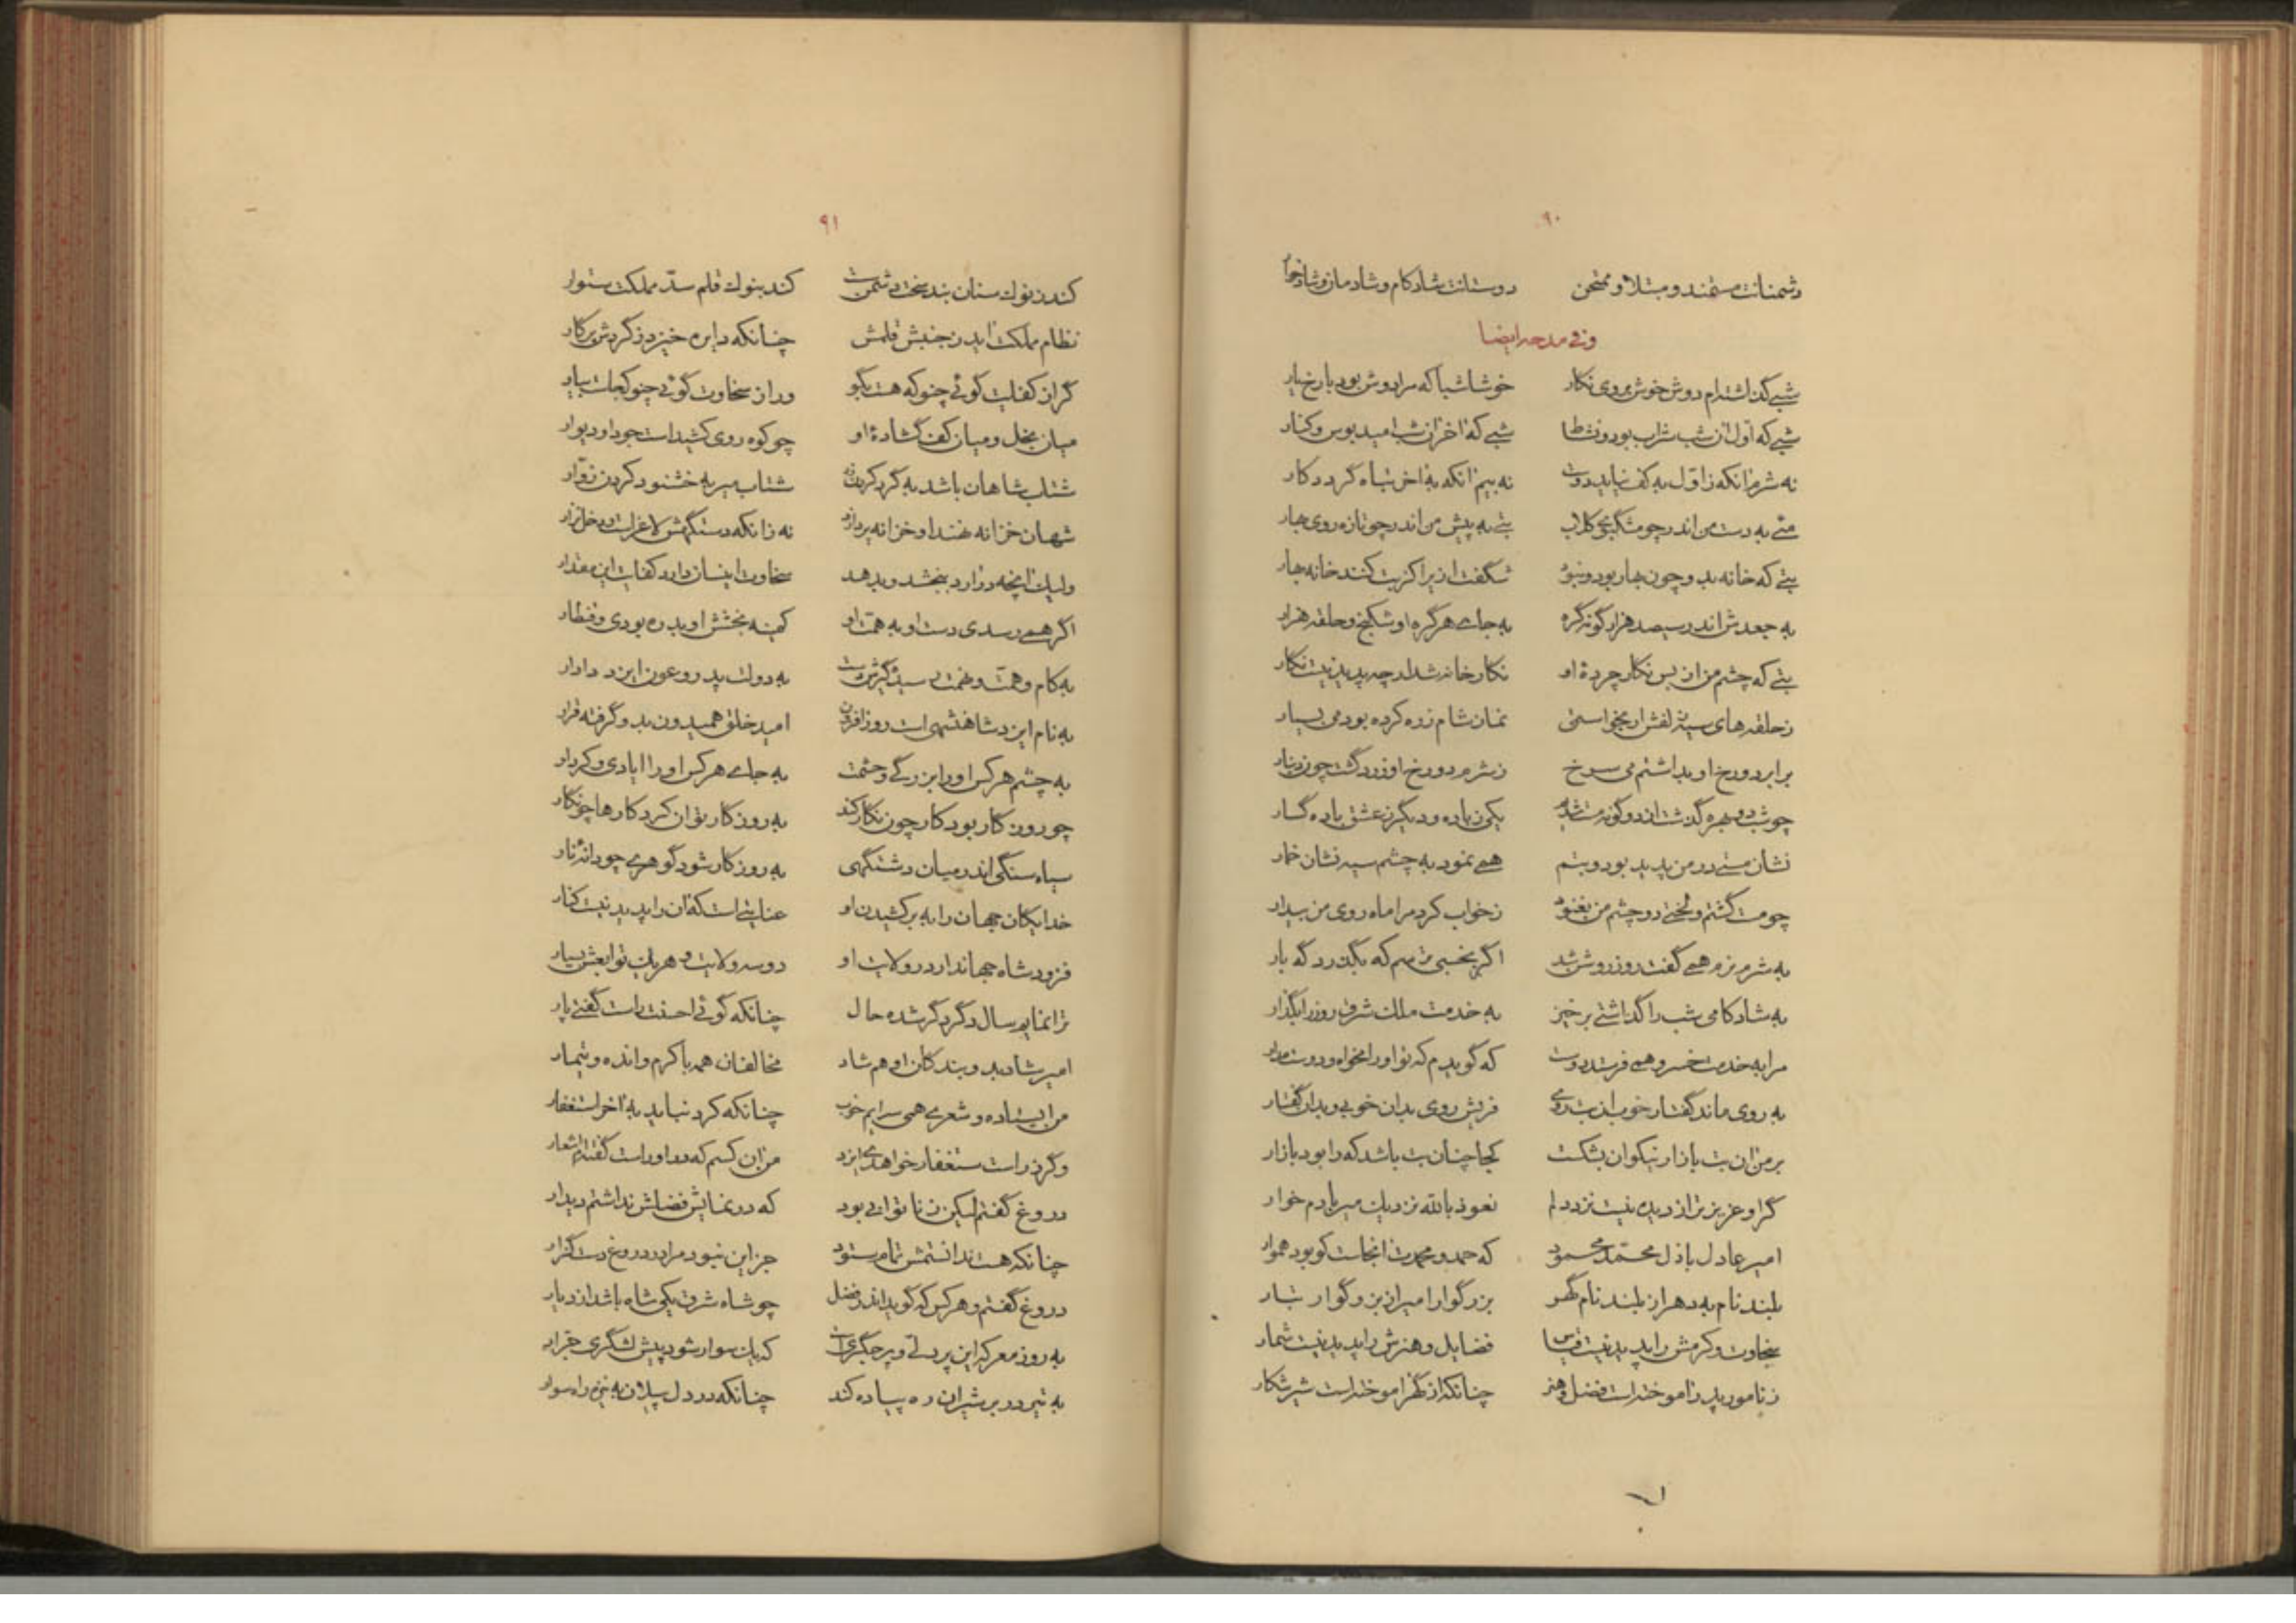 ۹۰
دشمنانت مستمند و مبتلا و ممتحن دوستانت شادکام و شادمان و شادخوار
و فی مدحه ایضا
شبی گذاشته‌ام دوش خوش بروی نگار خوشا شبا که مرا دوش بود با رخ یار
شبی که اول آن شب شراب بود و نشاط شبی که آخر آن شب امید بوس و کنار
نه شرم آنکه ز اول به کف نیاید دوست نه بیم آنکه به آخر تباه گردد کار
می به دست من اندر چو مشکبوی گلاب بتی به پیش من اندر چو تازه روی بهار
بتی که خانه بدو چون بهار بود و نبود شگفت ازیراکز بت کنند خانه بهار
به جعدش اندر سیصد هزار گونه گره به جای هر گره او شکنج و حلقه هزار
بتی که چشم من از بس نگار چهرهٔ او نگارخانه شد ارچه پدید نیست نگار
ز حلقه‌های سیه زلفش ار بخواستمی نماز شام زره کرده بودمی بسیار
برابر دو رخ او بداشتم می سرخ ز شرم دو رخ او زرد گشت چون دینار
چو شب دو بهره گذشت از دو گونه مست شدم یکی ز باده و دیگر ز عشق باده گسار
نشان مستی در من پدید بود و بتم همی نمود به چشم سیه نشان خمار
چو مست گشتم و لختی دو چشم من بغنود ز خواب کرد مرا ماه روی من بیدار
به شرم نرم همی گفت روز روشن شد اگر بخسبی ترسم که بگذرد گه بار
به شادکامی شب را گذاشتی برخیز به خدمت ملک شرق روز را بگذار
مرا به خدمت خسرو همی فرستد دوست که گویدم که تو او را مخواه و دوست مدار
به روی ماند گفتار خوب آن بت روی فریش روی بدان خوبی و بدان گفتار
بر من آن بت بازار نیکوان بشکست کجا چنان بت باشد که را بود بازار
گر او عزیزتر از دیده نیست نزد دلم نعوذ بالله نزدیک میر بادم خوار
امیر عادل باذل محمد محمود که حمد و محمدت آنجاست کو بود هموار
بلند نام به دهر از بلند نام گهر بزرگوار امیر از بزرگوار تبار
سخاوت و کرمش را پدید نیست قیاس فضایل و هنرش را پدید نیست شمار
ز نامور پدر آموخته است فضل و هنر چنانکه از گهر آموخته است شیر شکار
۹۱
کند ز نوک سنان بند سخت دشمن سست کند بنوک قلم سد مملکت ستوار
نظام مملکت آید ز جنبش قلمش چنانکه دایره خیزد ز گردش پرگار
گر از کفایت گوئی چنو که هست بگو ور از سخاوت گوئی چنو کجاست بیار
میان بخل و میان کف گشادهٔ او چو کوه روی کشیداست جود او دیوار
شتاب شاهان باشد به گرد کردن شتاب میر به خشنود کردن زوار
شهان خزانه نهند او خزانه پردازد نه زانکه دستگهش لاغر است و دخل نزار
ولیک آنچه درآرد ببخشد و بدهد سخاوت اینسان دارد کفایت این مقدار
اگر همی رسدی دست او به همت او کمینه بخشش او بدره بودی و قنطار
به کام و همت و نهمت به دولت پدر و عون ایزد دادار
به نام ایزد شاهنشهی است روزافزون امید خلق همیدون بدو گرفته قرار
به چشم هر کس او را بزرگی و حشمت به جای هر کس او را ایادی و کردار
چو روزگار بود کار چون نگار کند به روزگار توان کرد کارها چو نگار
سیاه سنگی اندر میان دشتگهی به روزگار شود گوهری چو دانهٔ نار
خدایگان جهان را به برکشیدن او عنایتی است که آن را پدید نیست کنار
فزود شاه جهاندار در ولایت او دو سه ولایت و هر یک توابعش بسیار
ترا نمایم سال دگر دگر شده حال چنانکه گوئی احسنت راست گفتی پار
امیر شاد بد و بندگان او هم شاد مخالفان همه با گرم و انده و تیمار
من ایستاده و شعری همی سرایم خوب چنانکه کرد نباید به آخر استغفار
وگر ز راست ستغفار خواهدی ایزد من آن کسم که مرا راست گفته‌ام اشعار
دروغ گفتم لیکن ز ناتوانی بود که در نمایش فضلش نداشتم دیدار
چنانکه هست ندانستمش تمام ستود جز این نبود مرا در دروغ دست گزار
دروغ گفتم و هر کس که گوید اندر فضل چو شاه شرق یکی شاه باشد از دیار
به روز معرکه این پر دلی و پر جگریست که یک سوار شود پیش لشگری جرار
به تیر در بر شیران ره پیاده کند چنانکه در دل پیلان به نیزه راه سوار